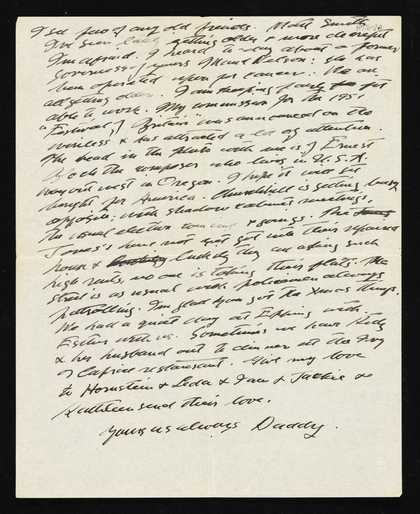 I see few of my old friends. Matt Smith
I've seen lately getting older & more cheerful
I'm afraid. I heard to day about a former
Governess of yours Maud Nelson: she has
been operated upon for cancer. We are
all getting older. I am keeping fairly fit
able to work. My commission for the 1951
"Festival of Britain" was announced on the
wireless & has attracted a lot of attention.
The head in the photo with me is of Ernest
Bloch the composer who lives in U.S.A.
way out west in Oregon. I hope it will be
bought for America. Churchill is getting busy
opposite: with shadow cabinet meetings,
the usual election comings & goings. The
Jones's have not yet got into their repaired
house & luckily they are asking such
high rents, no one is taking their flats. The
street is as usual with policemen always
patrolling. I'm glad you got the Xmas things.
We had a quiet day at Epping with
Esther with us. Sometimes we have Kitty
& her husband out to dinner at the Ivy
or Caprice restaurant. Give my love
to Hornstein & Leda & Ian & Jackie &
Kathleen send their love.
Yours as always Daddy.